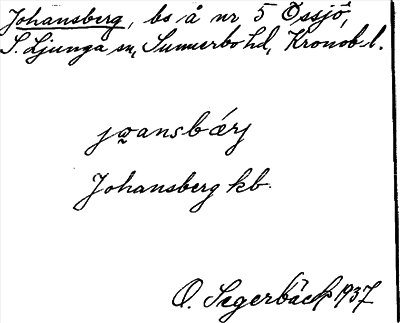 Johansberg, bs å nr 5 Össjö,
S. Ljunga sn, Sunnerbo hd, Kronob. l.
jo̰ansbærj
Johansberg kb.
O. Segerbäck 1937